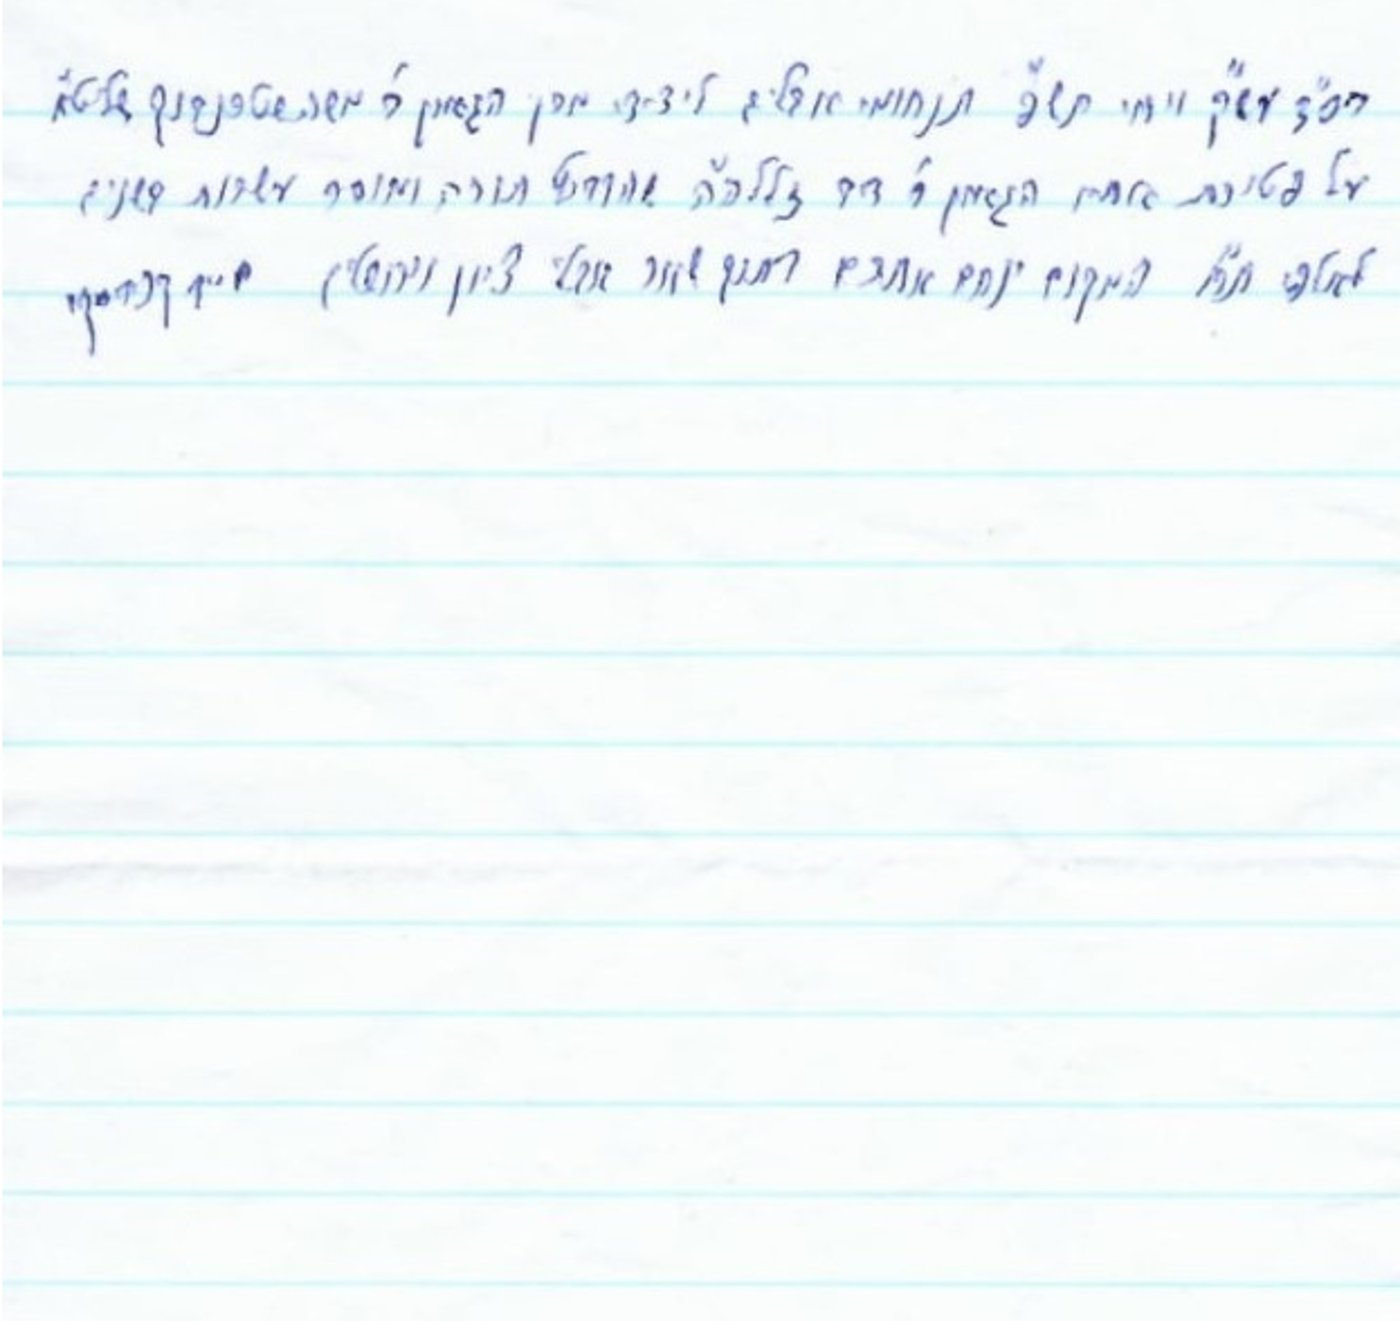 בס"ד עש"ק ויחי תש"פ תנחומי אבלים לידידי מרן הגאון ר' משה שטרנבוך שליט"א
על פטירת אחיו הגאון ר' דוד זללה"ה שהרביץ תורה ומוסר עשרות בשנים
לאלפי ת"ח המקום ינחם אתכם בתוך שאר אבלי ציון וירושלים חיים קניבסקי